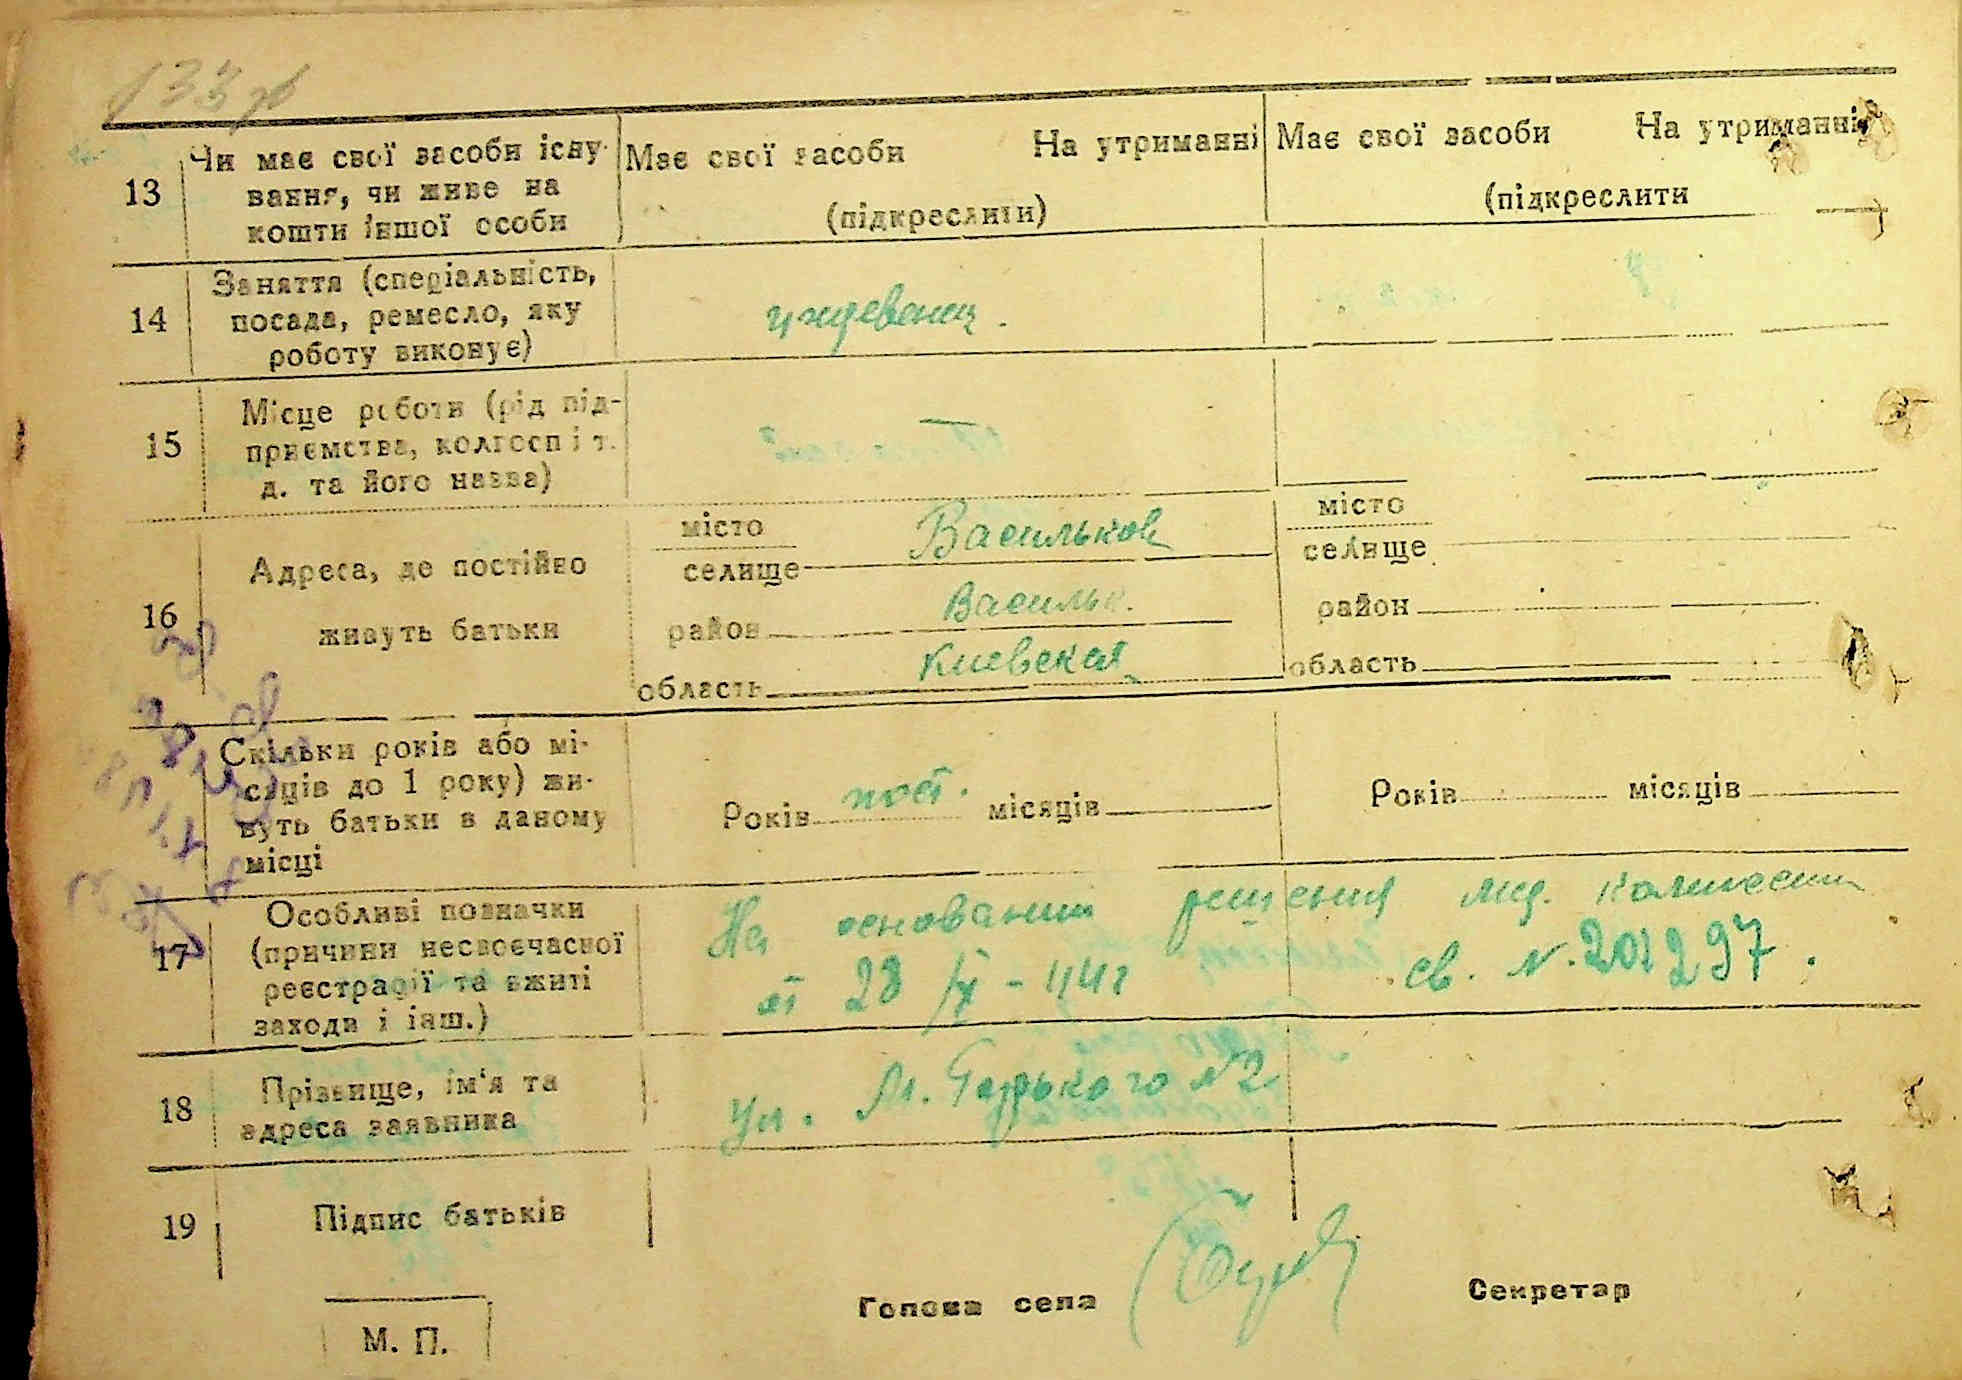 133
13
Чи має свої засоби існу-
вання, чи живе на
кошти іншої особи
Має свої засоби На утриманні
(підкреслити)
Має свої засоби На утриманні
(підкреслити
)
14
Заняття (спеціальність,
посада, ремесло, яку
роботу виконує)
иждевенец.
15
Місце роботи (рід під-
приємства, колгосп і т.
д. та його назва)
16
Адреса, де постійно
живуть батьки
місто
селище
Васильков
район Васильк.
область Киевская
місто
селище
район
область
Скільки років або мі-
сяців до 1 року) жи-
вуть батьки в даному
місці
Років пост. місяців
Років місяців
17
Особливі позначки
(причини несвоєчасної
реєстрації та вжиті
заходи і інш.)
На основании решения мед. комиссии
от 28/IX-44г св. N. 201297.
18
Прізвище, ім'я та
адреса заявника
ул. М. Горького N2
19
Підпис батьків
М. П.
Голова села
Секретар